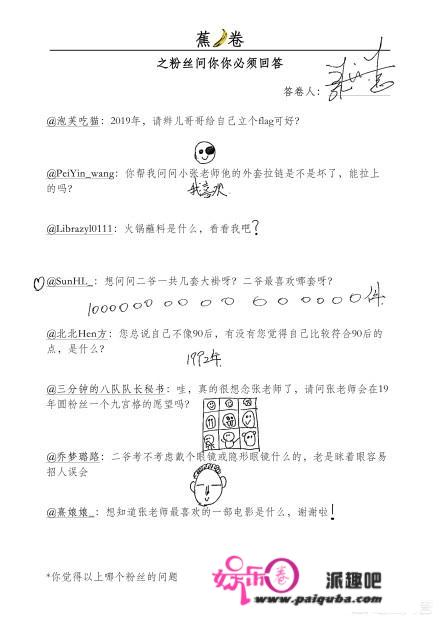 蕉🍌卷
之粉丝问你你必须回答
答卷人：张云雷
@泡芙吃猫：2019年，请辫儿哥哥给自己立个flag可好？
@PeiYin_wang：你帮我问问小张老师他的外套拉链是不是坏了，能拉上
的吗？
我喜欢
@Librazyl0111：火锅蘸料是什么，看看我吧？
@SunHL_：想问问二爷一共几套大褂呀？二爷最喜欢哪套呀？
1000000000000000件
@北北Hen方：您总说自己不像90后，有没有您觉得自己比较符合90后的
点，是什么？
1992年
@三分钟的八队队长秘书：哇，真的很想念张老师了，请问张老师会在19
年圆粉丝一个九宫格的愿望吗？
@乔梦璐路：二爷考不考虑戴个眼镜或隐形眼镜什么的，老是眯着眼容易
招人误会
@熹娘娘_：想知道张老师最喜欢的一部电影是什么，谢谢啦！
*你觉得以上哪个粉丝的问题
娱乐圈 派趣吧
www.paiquba.com